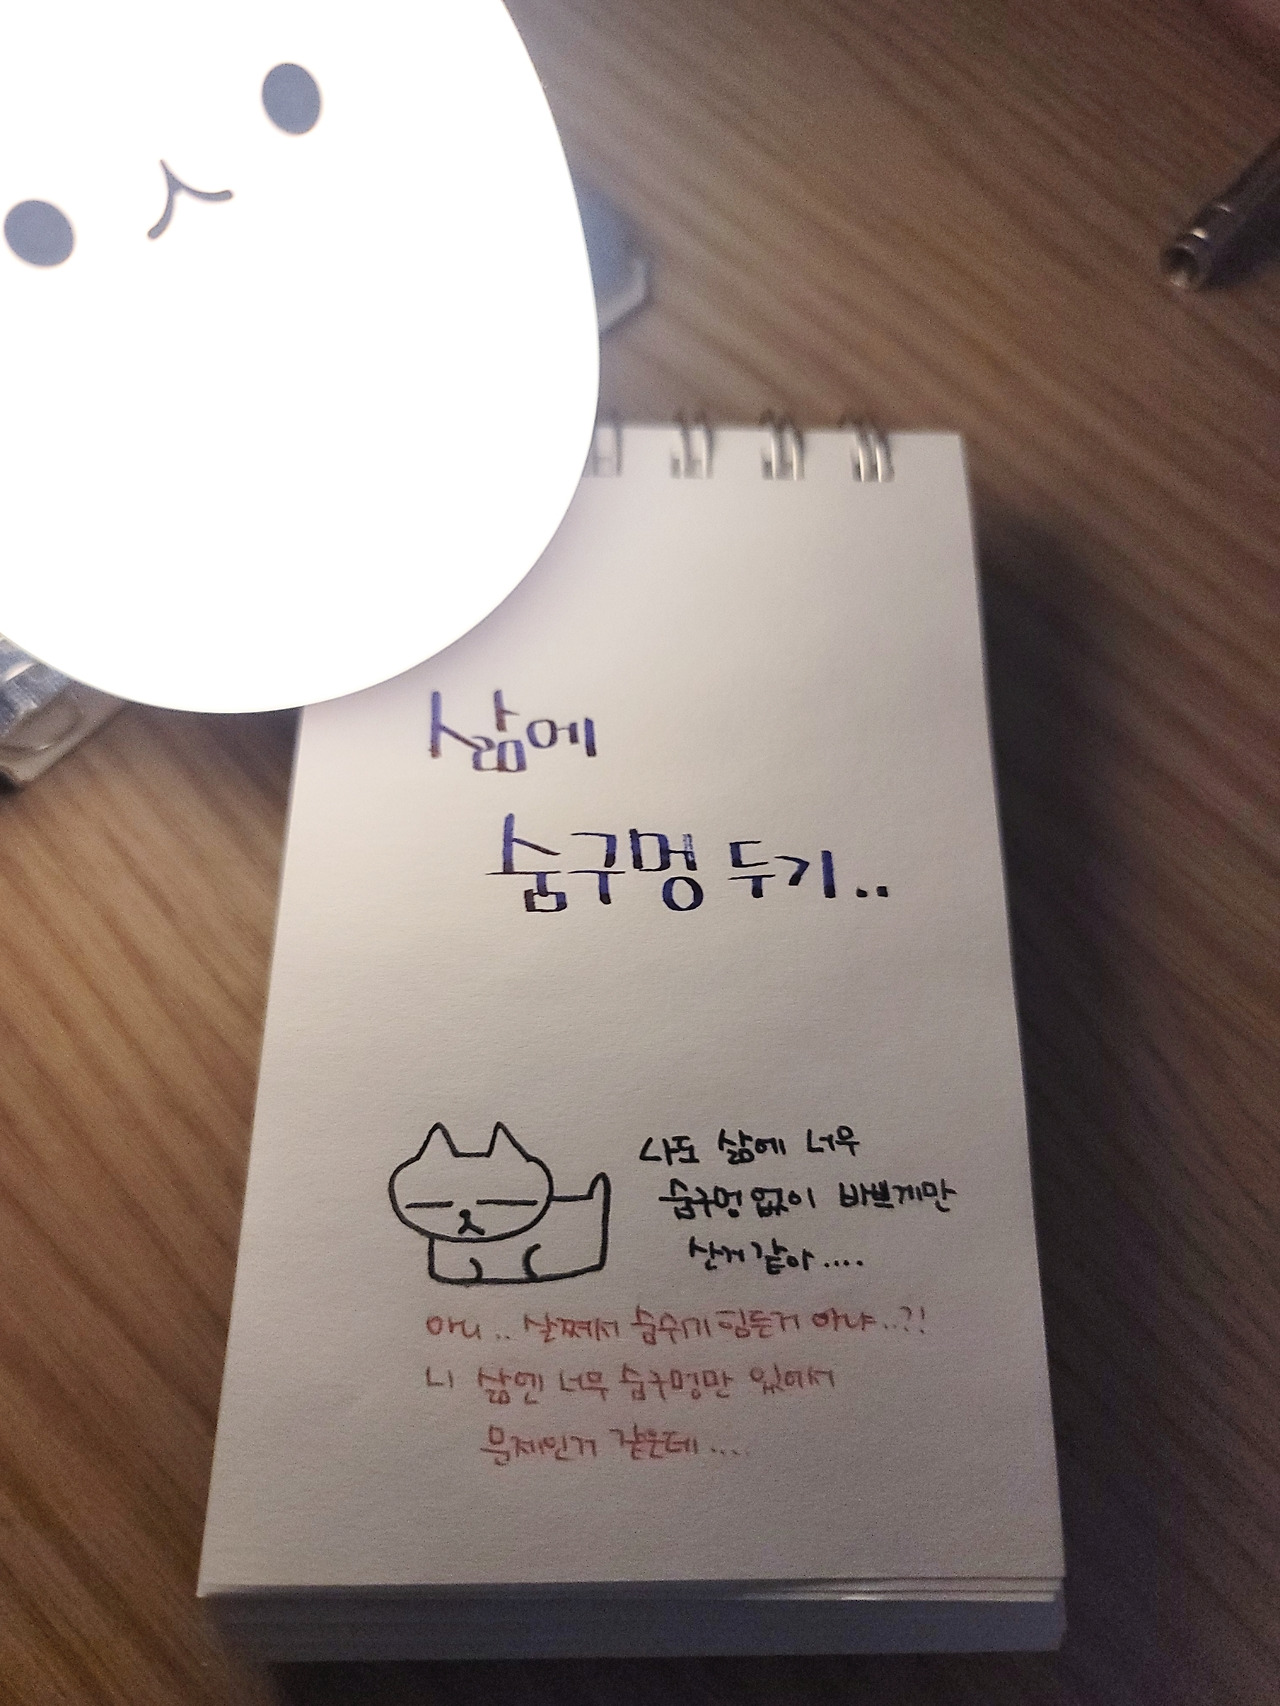 삶에
숨구멍 두기..
나도 삶에 너무
숨구멍 없이 바쁘게만
산거 같아....
아니.. 살쪄서 숨쉬기 힘든거 아냐..?!
니 삶엔 너무 숨구멍만 있어서
문제인거 같은데....